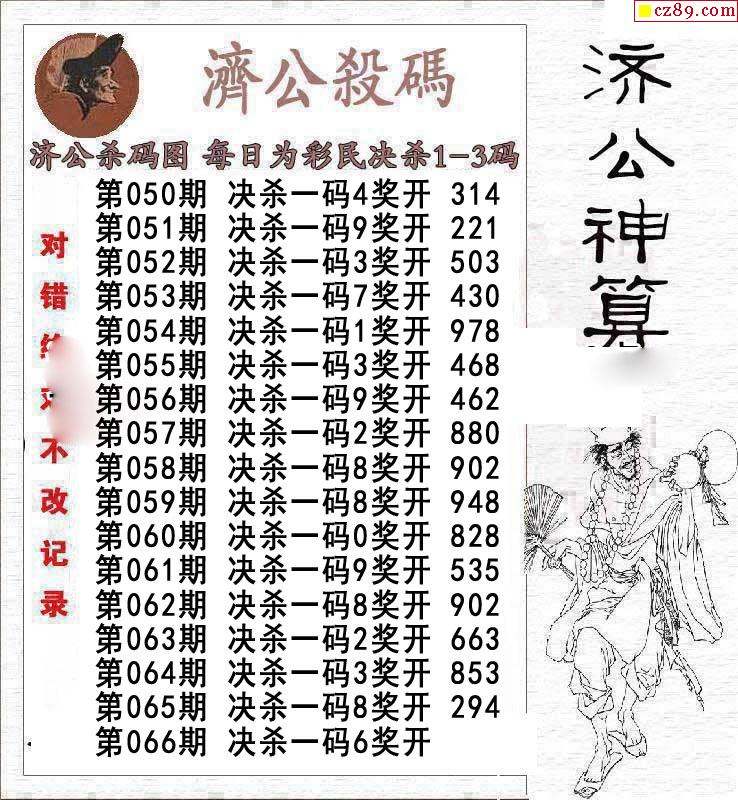 cz89.com
濟公殺碼
济公杀码图 每日为彩民决杀1-3码
第050期 决杀一码4奖开 314
第051期 决杀一码9奖开 221
第052期 决杀一码3奖开 503
第053期 决杀一码7奖开 430
第054期 决杀一码1奖开 978
第055期 决杀一码3奖开 468
第056期 决杀一码9奖开 462
第057期 决杀一码2奖开 880
第058期 决杀一码8奖开 902
第059期 决杀一码8奖开 948
第060期 决杀一码0奖开 828
第061期 决杀一码9奖开 535
第062期 决杀一码8奖开 902
第063期 决杀一码2奖开 663
第064期 决杀一码3奖开 853
第065期 决杀一码8奖开 294
第066期 决杀一码6奖开
对错不改记录
济公神算